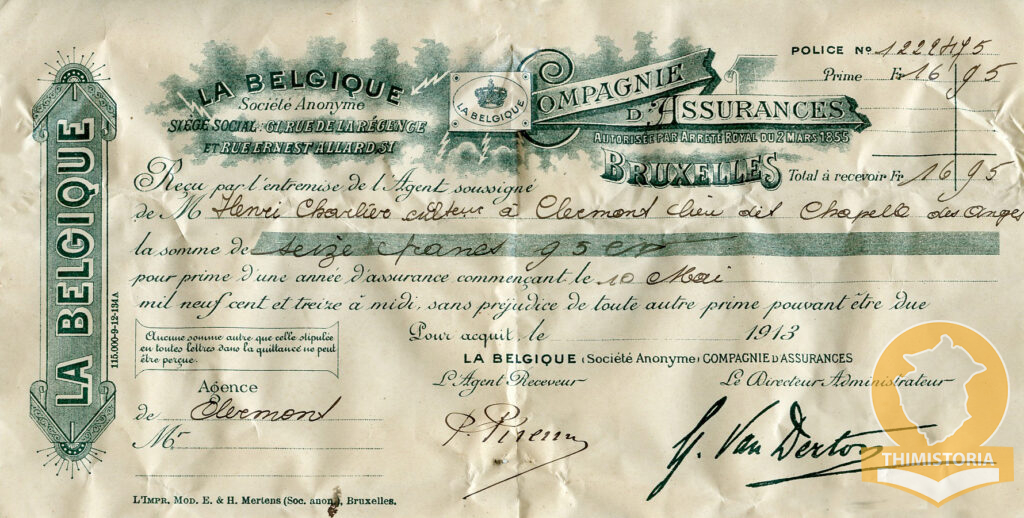 LA BELGIQUE
115.000-9-12-134A
LA BELGIQUE
Société Anonyme
SIÈGE SOCIAL: 61, RUE DE LA RÉGENCE
ET RUE ERNEST ALLARD, 51
LA BELGIQUE
COMPAGNIE
D'ASSURANCES
AUTORISÉE PAR ARRÊTÉ ROYAL DU 2 MARS 1855
BRUXELLES
POLICE No
Prime Fr 16 95
Total à recevoir Fr 16 95
Reçu par l'entremise de l'Agent soussigné
de M Henri Charlier à Clermont lieu dit Chapelle des Anges
la somme de seize francs 95
pour prime d'une année d'assurance commençant le 10 Mai
mil neuf cent et treize à midi, sans préjudice de toute autre prime pouvant être due
Aucune somme autre que celle stipulée
en toutes lettres dans la quittance ne peut
être perçue.
Pour acquit, le 1913
LA BELGIQUE (Société Anonyme) COMPAGNIE D'ASSURANCES
L'Agent Receveur
Le Directeur-Administrateur
Agence
de Clermont
Mr
L'IMPR. MOD. E. & H. Mertens (Soc. anon.), Bruxelles.
THIMISTORIA